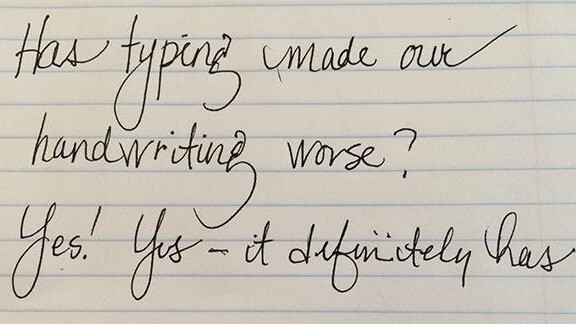 Has typing made our
handwriting worse?
Yes! Yes - it definitely has